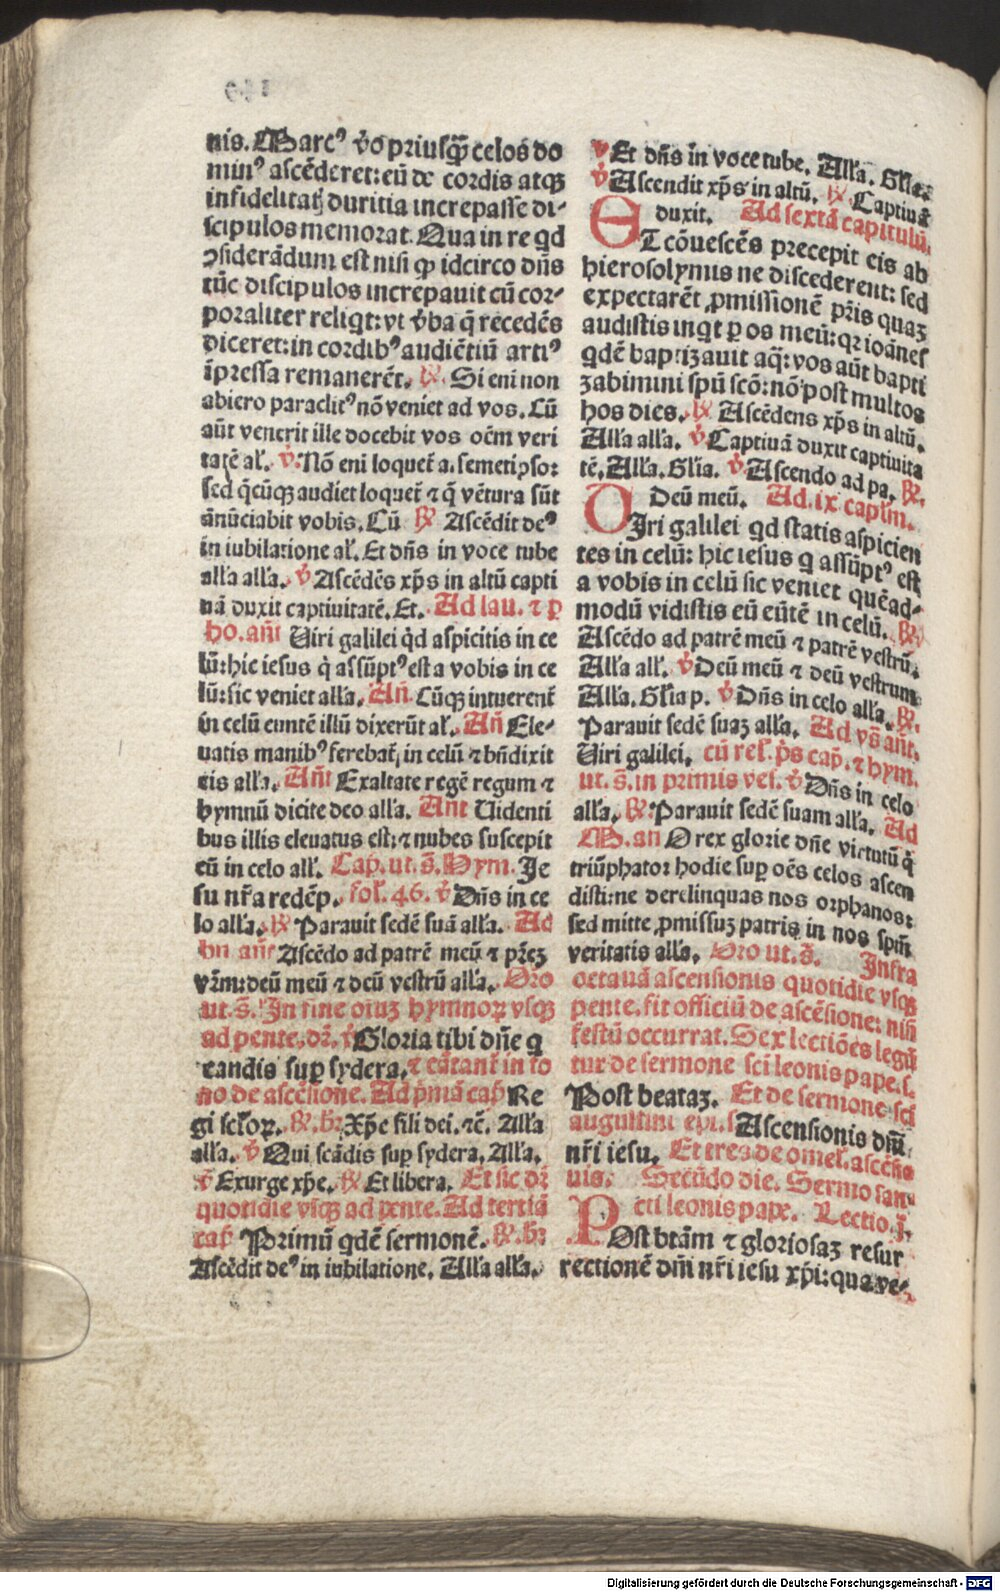 nis. Marcꝰ v̄o priusꝙ̄ celos do
minꝰ ascēderet: eū de cordis atqꝫ
infidelitatꝭ duritia increpasse di-
scipulos memorat. Qua in re qd
ꝯsiderādum est nisi ꝙ idcirco dn̄s
tūc discipulos increpauit cū cor-
poraliter reliqt: vt v̄ba q̄ recedēs
diceret: in cordibꝰ audiētiū artiꝰ
īpressa remanerēt. ℟. Si eni non
abiero paraclitꝰ nō veniet ad vos. Cū
aūt venerit ille docebit vos oēm veri
tatē al'. ℣. Nō eni loquet̄ a. semetipso:
sed q̄cūqꝫ audiet loquet̄ ⁊ q̄ vētura sūt
ānūciabit vobis. Cū ℟ Ascēdit deꝰ
in iubilatione al'. Et dn̄s in voce tube
alľa alľa. ℣ Ascēdēs xp̄s in altū capti
uā duxit captiuitatē. Et. Ad lau. ⁊ p
ho. an̄t Uiri galilei q̄d aspicitis in ce
lū: hic iesus q̄ assūptꝰ est a vobis in ce
lū: sic veniet alľa. An̄. Cūqꝫ intuerent̄
in celū euntē illū dixerūt al'. An̄ Ele-
uatis manibꝰ ferebat̄ in celū ⁊ bn̄dixit
eis alľa. An̄t Exaltate regē regum ⁊
hymnū dicite deo alľa. Ant Uidenti
bus illis eleuatus est: ⁊ nubes suscepit
eū in celo all'. Cap. ut. s̄. Hym. Je
su nr̄a redēp. fol'. 46. ℣ Dn̄s in ce
lo alľa. ℟ Parauit sedē suā alľa. Ad
bn̄ an̄t Ascēdo ad patrē meū ⁊ pr̄eꝫ
vr̄m: deū meū ⁊ deū vestrū alľa. Oro
ut. s̄. In fine oiuꝫ hymnoꝝ vsqꝫ
ad pente. dr̄. ℣ Gloria tibi dn̄e q
scandis suꝑ sydera. ⁊ cātant̄ in to
no de ascēsione. Ad p̄mā cap̄ Re
gi scl'oꝝ. ℟. br̄: Xp̄e fili dei. ⁊c̄. Alľa
alľa. ℣ Qui scādis suꝑ sydera. Alľa.
℣ Exurge xp̄e. ℟ Et libera. Et sic dr̄
quotidie vsqꝫ ad pente. Ad tertiā
cap̄ Primū qdē sermonē. ℟. br̄:
Ascēdit deꝰ in iubilatione. Alľa alľa.
℣ Et dn̄s in voce tube. Alľa. Glīa.
℣ Ascendit xp̄s in altū. ℟ Captiuā
duxit. Ad sextā capitulū.
ET cōuescēs precepit eis ab
hierosolymis ne discederent: sed
expectarēt ꝓmissionē pr̄is quaꝫ
audistis inqt ꝑ os meū: qꝛ ioānes
qdē baptizauit aq̄: vos aūt bapti
zabimini spū scō: nō post multos
hos dies. ℟ Ascēdens xp̄s in altū.
Alľa alľa. ℣ Captiuā duxit captiuita
tē. Alľa. Glīa. ℣ Ascendo ad pa. ℟.
Deū meū. Ad. ix. capľm.
UIri galilei qd statis aspicien
tes in celū: hic iesus q assūptꝰ est
a vobis in celū sic veniet quēad-
modū vidistis eū eūtē in celū. ℟
Ascēdo ad patrē meū ⁊ patrē vestrū.
Alľa all'. ℣ Deū meū ⁊ deū vestrum
Alľa. Glīa p. ℣ Dn̄s in celo alľa. ℟.
Parauit sedē suaꝫ alľa. Ad vs̄ an̄t.
Uiri galilei. cū rel'. p̄s cap̄. ⁊ hym.
ut. s̄. in primis ves. ℣ Dn̄s in celo
alľa. ℟. Parauit sedē suam alľa. Ad
M. an O rex glorie dn̄e virtutū q̄
triūphator hodie suꝑ oēs celos ascen
disti: ne derelinquas nos orphanos:
sed mitte ꝓmissuꝫ patris in nos spm̄
veritatis alľa. Oro ut. s̄. Infra
octauā ascensionis quotidie vsqꝫ
pente. fit officiū de ascēsione: nisi
festū occurrat. Sex lectiōes legū
tur de sermone scī leonis pape. s.
Post beataꝫ. Et de sermone scī
augustini epi. s. Ascensionis dn̄i
nr̄i iesu. Et tres de omel'. ascēsio
nis. Secūdo die. Sermo san
cti leonis pape. Lectio. j.
POst btām ⁊ gloriosaꝫ resur
rectionē dn̄i nr̄i iesu xp̄i: qua ve-
Digitalisierung gefördert durch die Deutsche Forschungsgemeinschaft - DFG